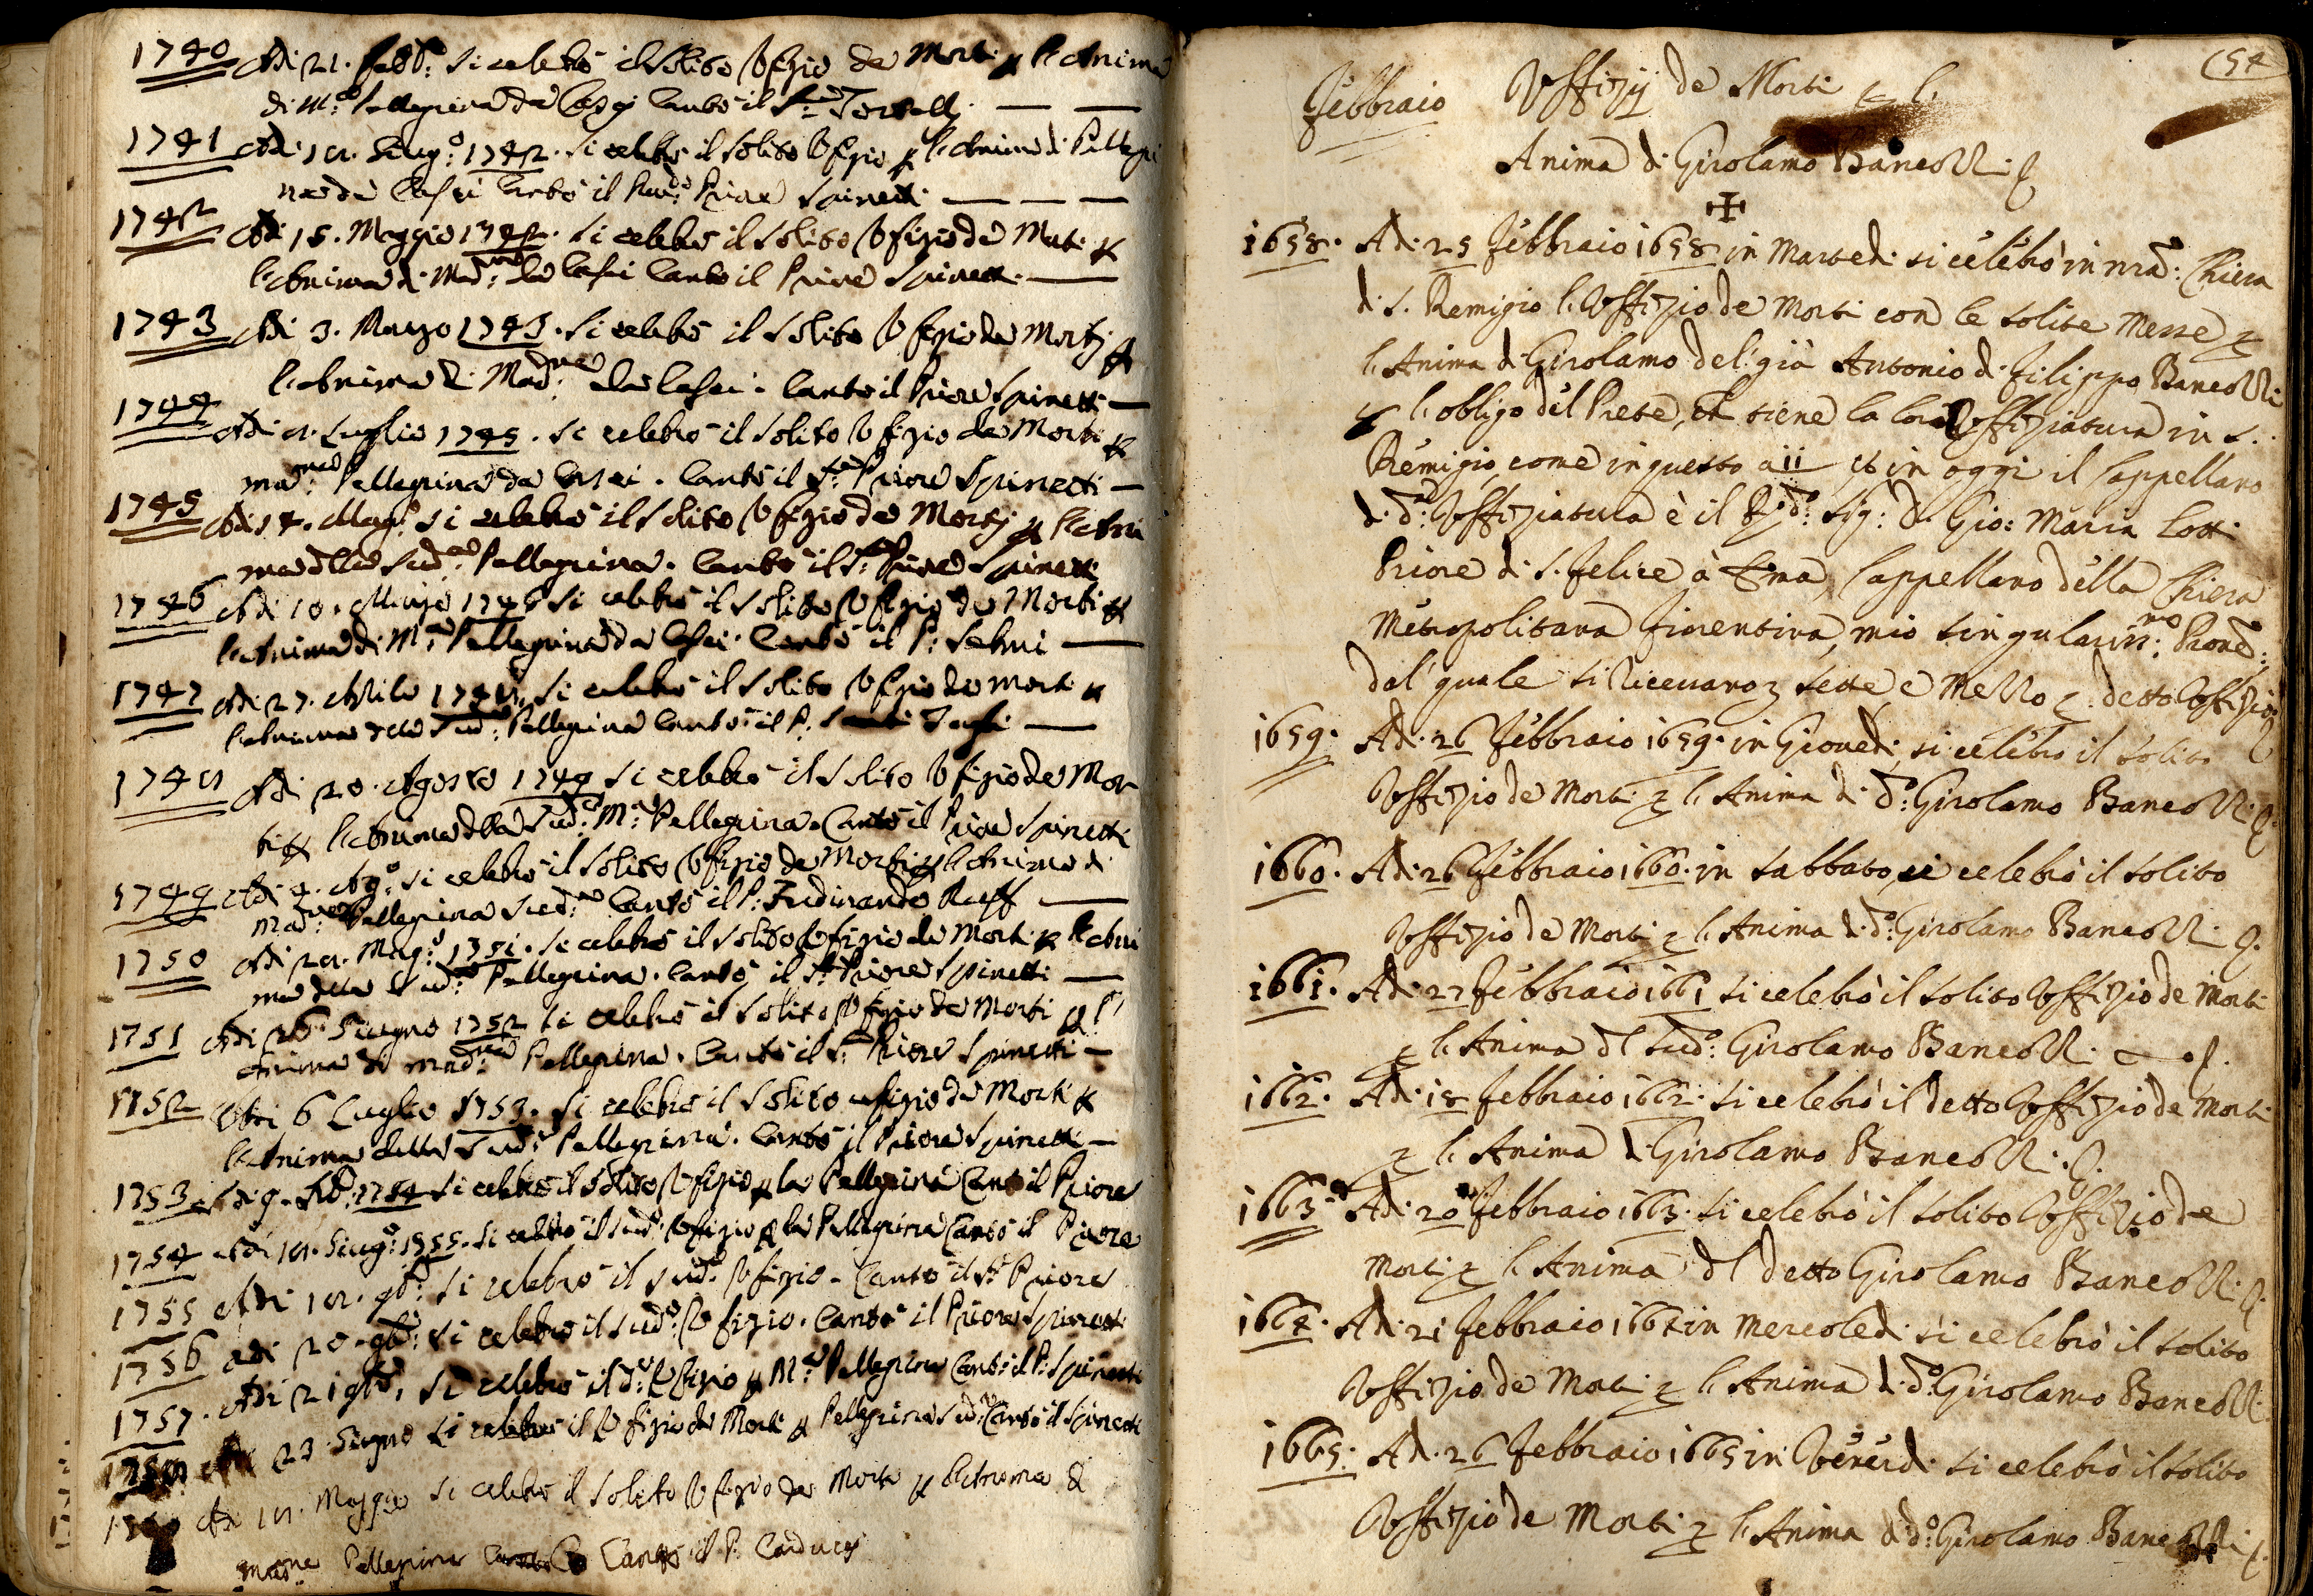 1740 Adi 21. Febb:º si celebrò il solito Ufizio de Morti p l'Anima
di M:ª Pellegrina da Casci Cantò il
1741 Adi 18. Giug:º 1742. si celebrò il solito Ufizio p l'Anima di Pellegri
na da Casci Cantò il Rev:do Priore Spinetti
1742 Adi 15. Maggio 1742. si celebrò il solito Ufizio de Morti p
l'Anima di Mad:na da Casci Cantò il Priore Spinetti
1743 Adi 3. Marzo 1743. si celebrò il solito Ufizio de Morti p
l'Anima di Mad:na da Casci. Cantò il Priore Spinetti
1744 Adi 8. Luglio 1745. si celebrò il solito Ufizio de Morti p
mad:na Pellegrina da Casci. Cantò il S:r Priore Spinetti
1745 Adi 14. Mag:º si celebrò il solito Ufizio de Morti p l'Ani
ma della Sud:ª Pellegrina. Cantò il S:r Priore Spinetti
1746 Adi 10. Marzo 1746 si celebrò il solito Ufizio de Morti p
l'Anima di M:ª Pellegrina da Casci. Cantò il P:
1747 Adi 27. Aprile 1748, si celebrò il solito Ufizio de Morti p
l'Anima della Sud:ª Pellegrina Cantò il P:
1748 Adi 20. Agosto 1749 si celebrò il solito Ufizio de Mor
ti p l'Anima della Sud:ª M:ª Pellegrina. Cantò il Priore Spinetti
1749 Adi 4. Ag:º si celebrò il solito Ufizio de Morti p l'Anima di
Mad:na Pellegrina Sud:ª Cantò il P: Ferdinando
1750 Adi 28. Mag:º 1751. si celebrò il solito Ufizio de Morti p l'Ani
ma della Sud:ª Pellegrina. Cantò il S:r Priore Spinetti
1751 Adi 26 Giugno 1752 si celebrò il solito Ufizio de Morti p l'
Anima di mad:na Pellegrina. Cantò il S:r Priore Spinetti
1752 Adi 6 Luglio 1753. si celebrò il solito ufizio de Morti p
l'Anima della Sud:ª Pellegrina. Cantò il Priore Spinetti
1753 Adi 9. Feb:º 1754 si celebrò il solito Ufizio p la Pellegrina Cantò il Priore
1754 Adi 18. Giug:º 1755. si celebrò il sud:º Ufizio p la Pellegrina Cantò il Priore
1755 Adi 18. 9b:e si celebrò il sud:º Ufizio. Cantò il S:r Priore
1756 adi 20. 9b:e si celebrò il sud:º Ufizio. Cantò il Priore Spinetti
1757. Adi 21 9b:e, si celebrò il d:º Ufizio p M:ª Pellegrina Cantò il P: Spinetti
1758 Adi 23 Giugno si celebrò il Ufizio de Morti p Pellegrina Sud:ª Cantò il Spinetti
Adi 18. Maggio si celebrò il solito Ufizio de Morti p l'Anima di
Pellegrina Cantò il P. Carducci
154
Febbraio Uffizij de Morti p l'
Anima di Girolamo Bancozzi
1658. Adi 25 Febbraio 1658 in Martedi si celebrò in nra: Chiesa
di S. Remigio l'Uffizio de Morti con le solite Messe p
l'Anima di Girolamo del già Antonio di Filippo Bancozzi
p l'obligo del Prete, che tiene la loro Uffiziatura in S.
Remigio, come in questo a 11 et in oggi il Cappellano
di d:ª Uffiziatura è il R:do Sig: D. Gio: Maria Lotti
Priore di S. Felice à Ema, Cappellano della Chiesa
Metropolitana Fiorentina, mio singularis:mo Prone:
dal' quale si ricevano sette e mezzo p detto Uffizio
1659. Adi 26 Febbraio 1659. in Giovedi si celebrò il solito
Uffizio de Morti p l'Anima di d:º Girolamo Bancozzi.
1660. Adi 26 Febbraio 1660. in Sabbato, si celebrò il solito
Uffizio de Morti p l'Anima di d:º Girolamo Bancozzi.
1661. Adi 27 Febbraio 1661 si celebrò il solito Uffizio de Morti
p l'Anima del Sud:º Girolamo Bancozzi.
1662. Adi 18 Febbraio 1662. si celebrò il detto Uffizio de Morti
p l'Anima di Girolamo Bancozzi.
1663. Adi 20 Febbraio 1663. si celebrò il solito Uffizio de
Morti p l'Anima del detto Girolamo Bancozzi.
1664. Adi 21 Febbraio 1664 in Mercoledi si celebrò il solito
Uffizio de Morti p l'Anima di d:º Girolamo Bancozzi.
1665. Adi 26 Febbraio 1665 in Venerdi si celebrò il solito
Uffizio de Morti p l'Anima di d:º Girolamo Bancozzi